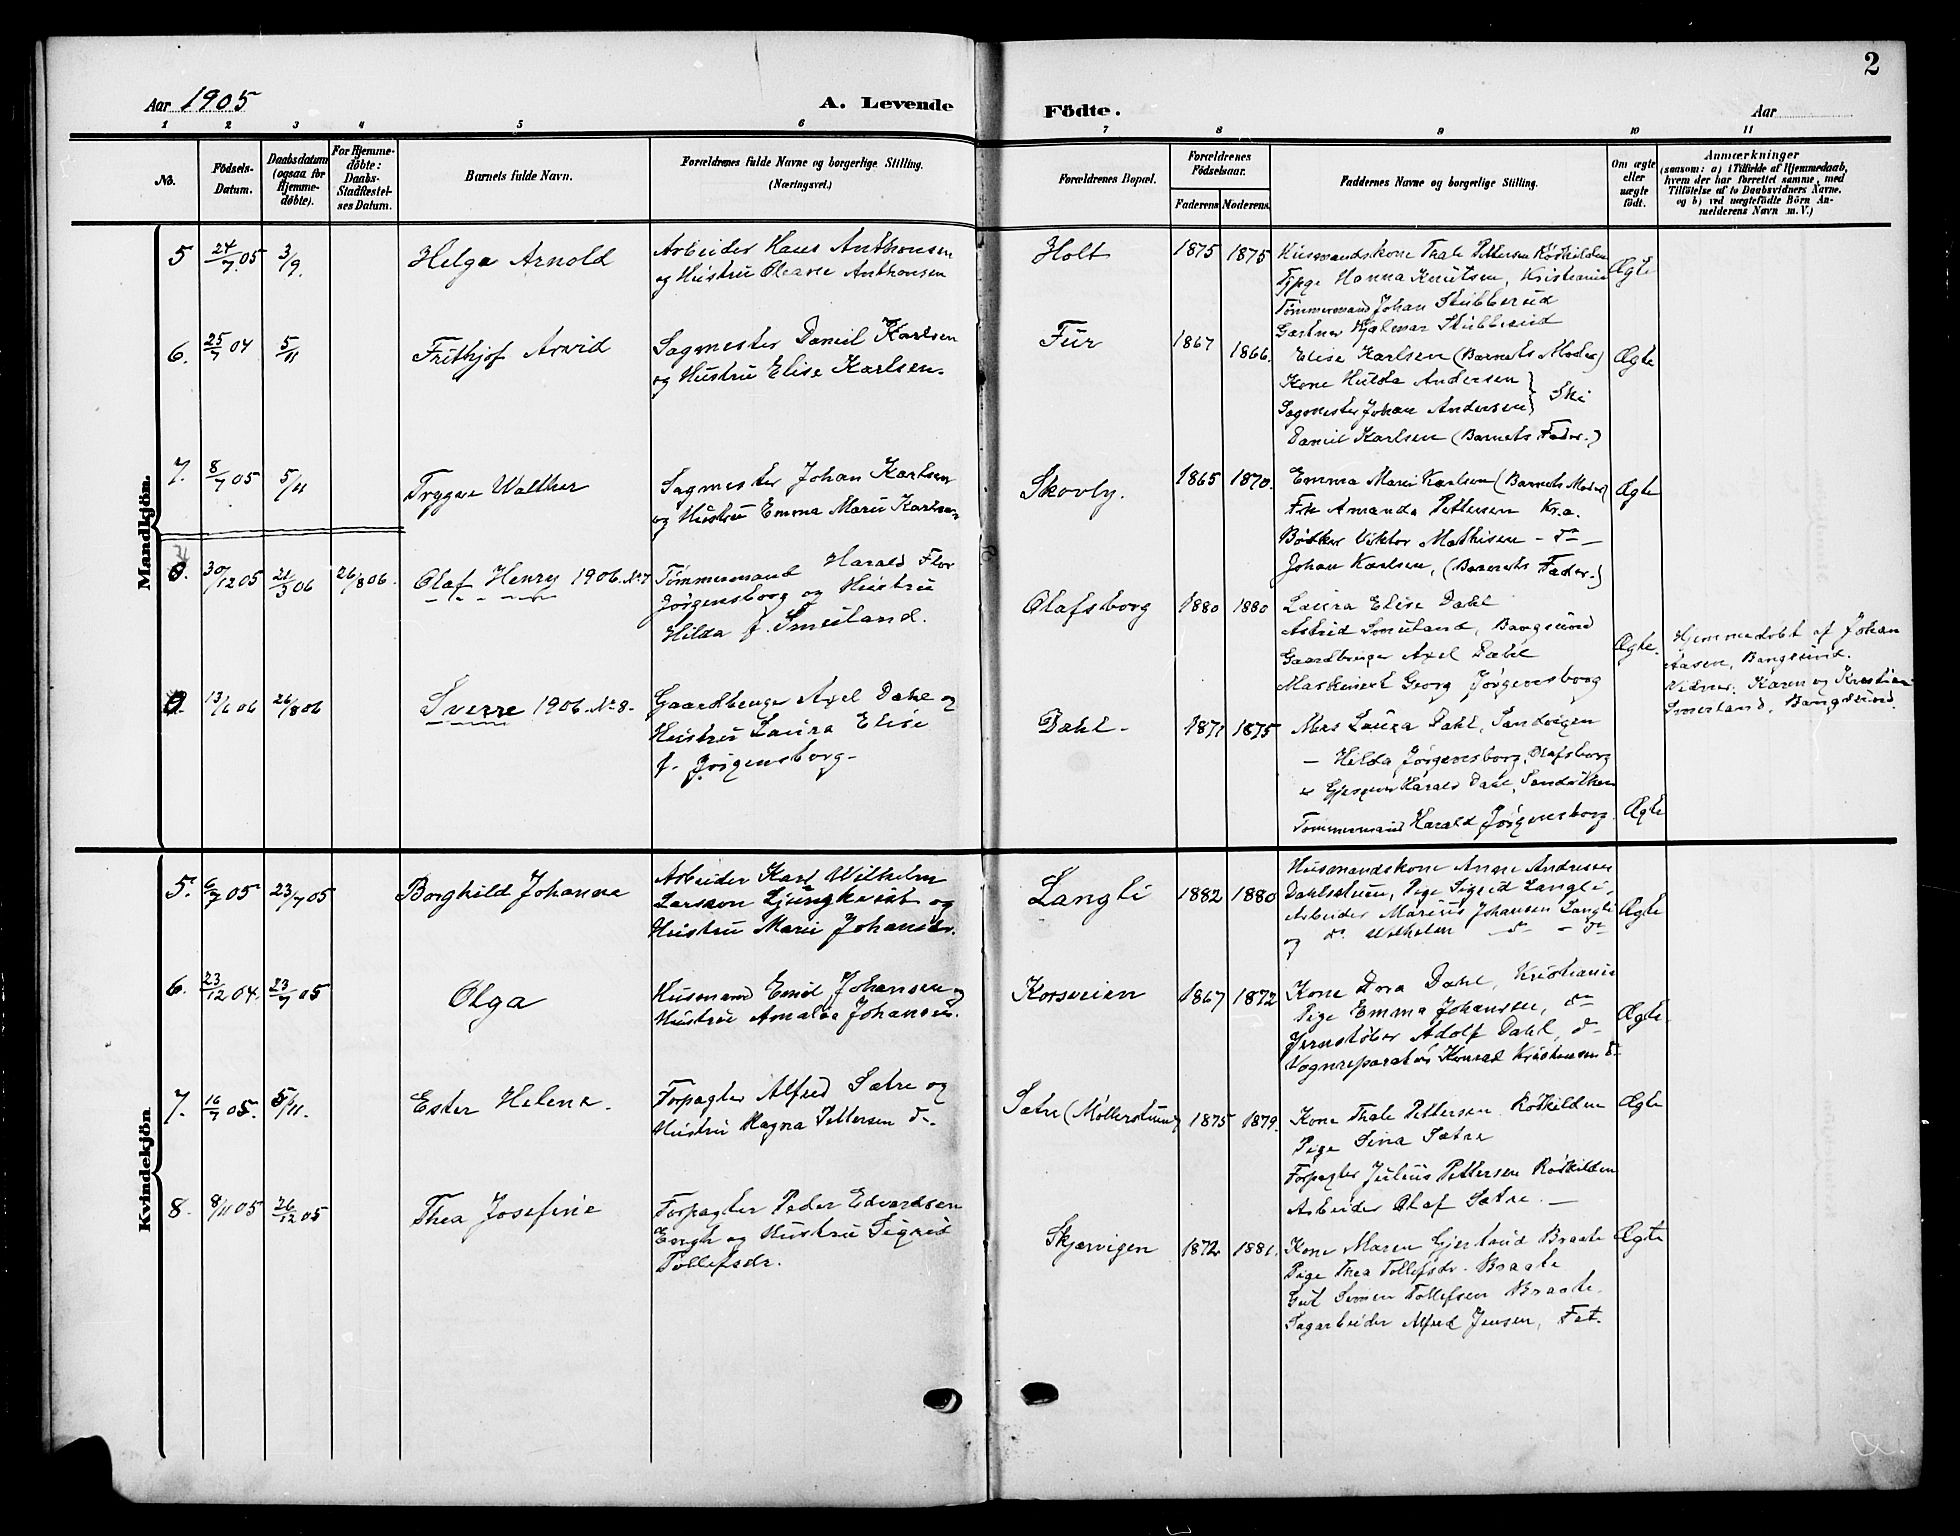 2
Aar 1905
A. Levende
Födte.
Aar
1 2 3 4 5 6 7 8 9 10 11
No.
Födsels-
Datum.
Daabsdatum
(ogsaa for
Hjemme-
døbte).
For Hjemme-
døbte:
Daabs-
Stadfæstel-
ses Datum.
Barnets fulde Navn.
Forældrenes fulde Navne og borgerlige Stilling.
(Næringsvei.)
Forældrenes Bopæl.
Forældrenes
Födselsaar.
Faderens
Moderens
Faddernes Navne og borgerlige Stilling.
Om ægte
eller
uægte
födt.
Anmærkninger
(saasom: a) i Tilfælde af Hjemmedaab,
hvem der har forrettet samme, med
Tilföielse af to Daabsvidners Navne.
og b) ved uægtefödte Börn An-
melderens Navn m. V.)
Mandkjön.
5
24/7 05
3/9.
Helge Arnold
Arbeider Hans Anthonsen
og Hustru Oleane Anthonsen
Holt
1875
1875
Husmandskone Thale Pettersen Röskilden
Hanna Knutsen, Kristiania
Tømmermand Johan Stubberud
Gartner Hjalmar Stubberud
Ægte
6.
25/7 04
5/11
Frithjof Arvid
Sagmester Daniel Karlsen
og Hustru Elise Karlsen.
Fur
1867
1866.
Elise Karlsen (Barnets Moder)
Kone Hulda Andersen
Sagmester Johan Andersen } Ski
Daniel Karlsen (Barnets Fader.)
Ægte
7.
8/7 05
5/11
Trygve Walther
Sagmester Johan Karlsen
og Hustru Emma Marie Karlsen
Skovly.
1865
1870.
Emma Marie Karlsen (Barnets Moder)
Frk Amanda Pettersen Kra.
Bödker Viktor Mathisen - do -
Johan Karlsen, (Barnets Fader.)
Ægte
30/12 05
26/8 06.
Olaf Henry 1906. No 7
Tømmermand Harald Flor
Jørgensborg og Hustru
Hilda f. Smeiland.
Olafsborg
1880
1880
Laura Elise Dahl
Astrid Smeiland, Bangsund
Gaardbruger Axel Dahl
Maskinist Georg Jørgensborg
Ægte.
Hjemmedøbt af Johan
Aasen, Bangsund.
Vidner: Karen og Kristian
Smeiland, Bangsund.
13/6 06
26/8 06
Sverre 1906. No 8.
Gaardbruger Axel Dahl og
Hustru Laura Elise
f. Jørgensborg-
Dahl-
1871
1875
Mrs Laura Dahl, Sandvigen
- Hilda Jørgensborg, Olafsborg
Harald Dahl, Sandviken
Tømmermand Harald Jørgensborg.
Ægte
Kvindekjön
5.
6/7 05
23/7 05
Borghild Johanne
Arbeider Karl Wilhelm
Larsson Ljungkvist og
Hustru Marie Johansdr.
Langli
1882
1880
Husmandskone Anne Andresen
Dahlsstuen, Pige Sigrid Langli,
Arbeider Marius Johansen Langli
og do Wilhelm do - do
Ægte
6.
23/12 04.
23/7 05
Olga
Husmand Emil Johansen og
Hustru Amalia Johansen.
Korsveien
1867
1872
Kone Dora Dahl, Kristiania
Pige Emma Johansen, do
Jernstøber Adolf Dahl, do
Vognreparatør Konrad Kristiansen do
Ægte
7.
16/7 05.
5/11.
Ester Helene.
Forpagter Alfred Sætre og
Hustru Magna Pettersen do.
Sætre (Møllerstuen)
1875
1879.
Kone Thale Pettersen Röskilden
Pige Lina Sætre
Forpagter Julius Pettersen Röskilden
Arbeider Olaf Sætre. -
Ægte
8.
8/11 05
26/12 05
Thea Josefine
Forpagter Peder Edvardsen
Engh og Hustru Sigrid
Tollefsdr.
Skjærvigen
1872
1881.
Kone Maren Gjertrud Braate
Pige Thea Tollefsdr. Braate
Gut Simen Tollefsen Braate.
Sagarbeider Alfred Jensen, Fet.
Ægte